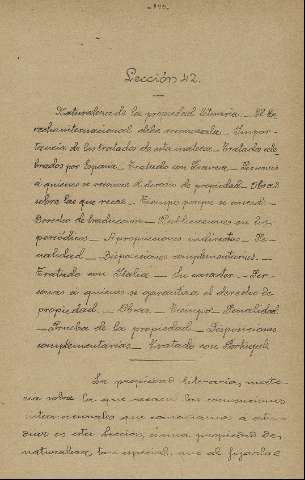 Lección 42.
Naturaleza de la propiedad literaria. — El De-
recho internacional debe reconocerla. — Impor-
tancia de los tratados de esta materia. — Tratados cele-
brados por España. — Tratado con Francia. — Personas
á quienes se reconoce el derecho de propiedad. — Obras
sobre las que recae. — Tiempo porque se concede. —
Derecho de traduccion. — Publicaciones en los
periódicos. — Apropiaciones indirectas. — Pe-
nalidad. — Disposiciones complementarias. —
Tratado con Italia. — Su caracter. — Per-
sonas á quienes se garantiza el derecho de
propiedad. — Obras. — Tiempo. — Penalidad.
— Prueba de la propiedad. — Disposiciones
complementarias. — Tratado con Portugal.
La propiedad literaria, mate-
ria sobre la que recaen las convenciones
internacionales que
en esta leccion, es una propiedad de
naturaleza tan especial, que al fijarla